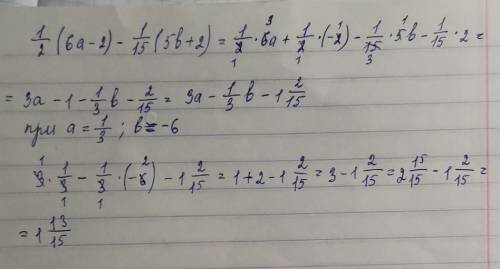 1/2 (6a-2) - 1/15 (5b+2) = 1/2 · 6a + 1/2 · (-2) - 1/15 · 5b - 1/15 · 2 =
= 3a - 1 - 1/3 b - 2/15 = 3a - 1/3 b - 1 2/15
при a = 1/3 ; b = -6
3 · 1/3 - 1/3 · (-6) - 1 2/15 = 1 + 2 - 1 2/15 = 3 - 1 2/15 = 2 15/15 - 1 2/15 =
= 1 13/15